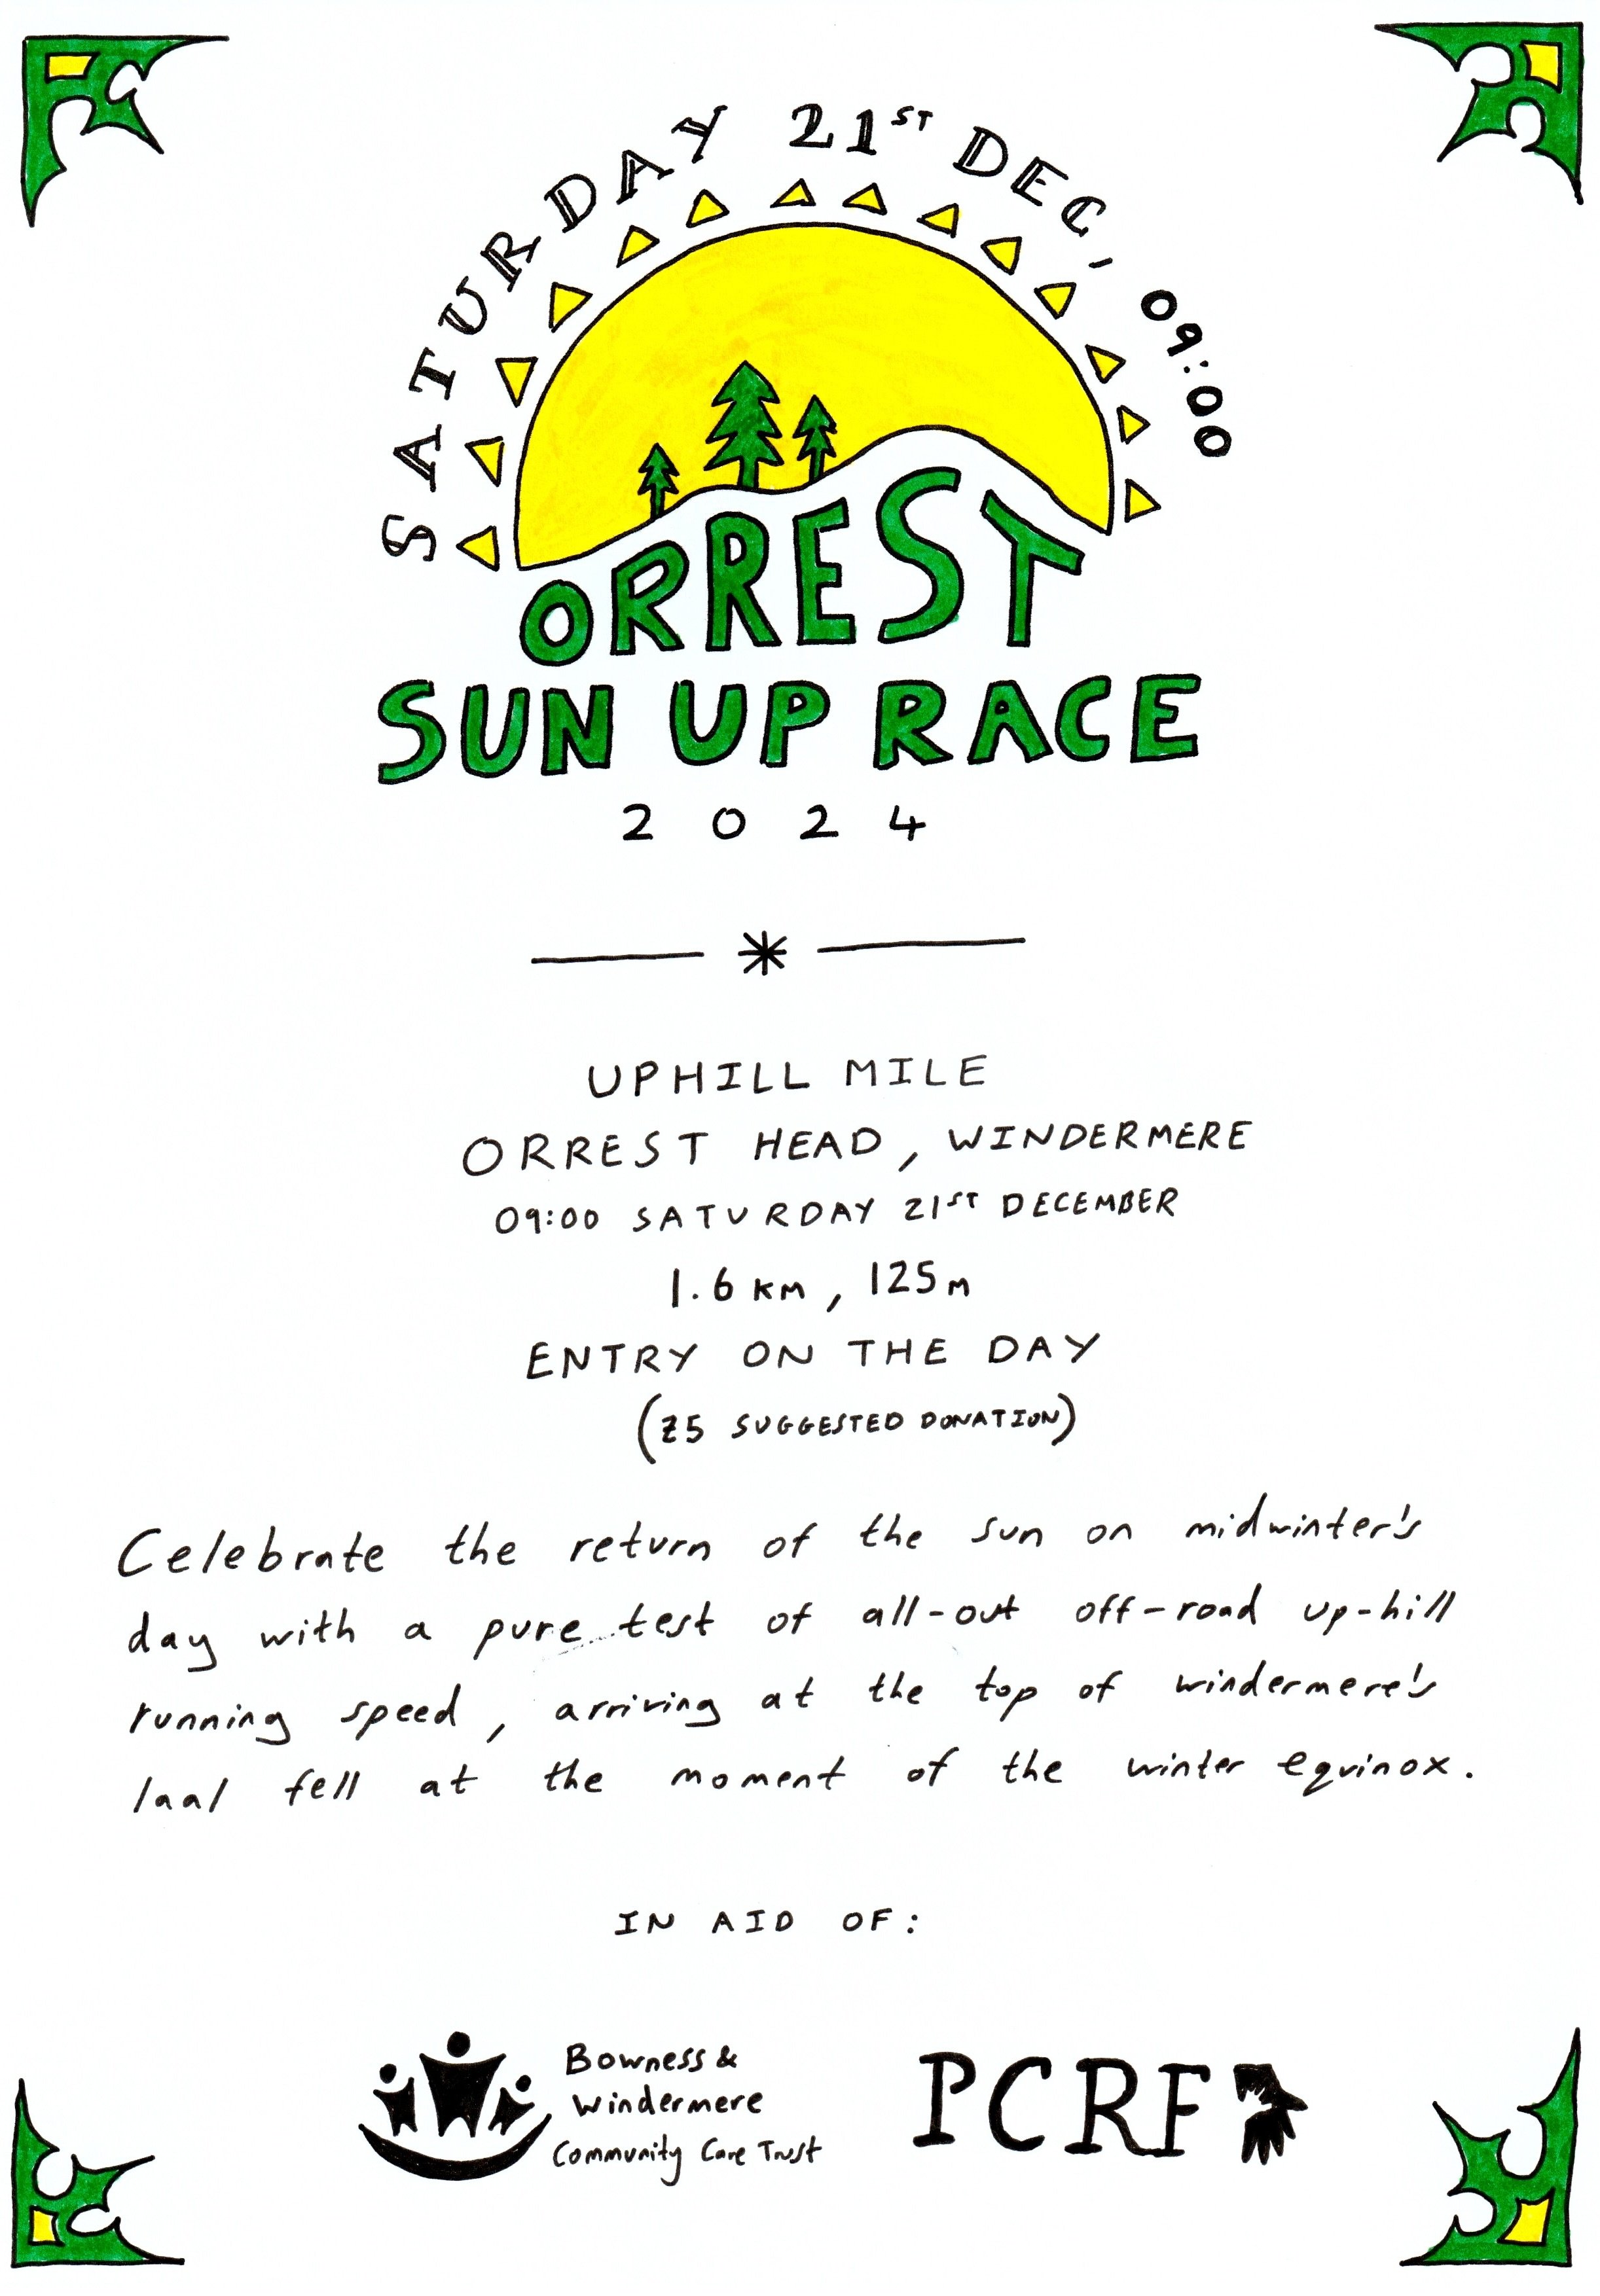 SATURDAY 21ST DEC, 09:00
ORREST
SUN UP RACE
2024
UPHILL MILE
ORREST HEAD, WINDERMERE
09:00 SATURDAY 21ST DECEMBER
1.6 KM, 125M
ENTRY ON THE DAY
(£5 SUGGESTED DONATION)
Celebrate the return of the sun on midwinter's
day with a pure test of all-out off-road up-hill
running speed, arriving at the top of windermere's
laal fell at the moment of the winter equinox.
IN AID OF:
Bowness &
Windermere
Community Care Trust
PCRF